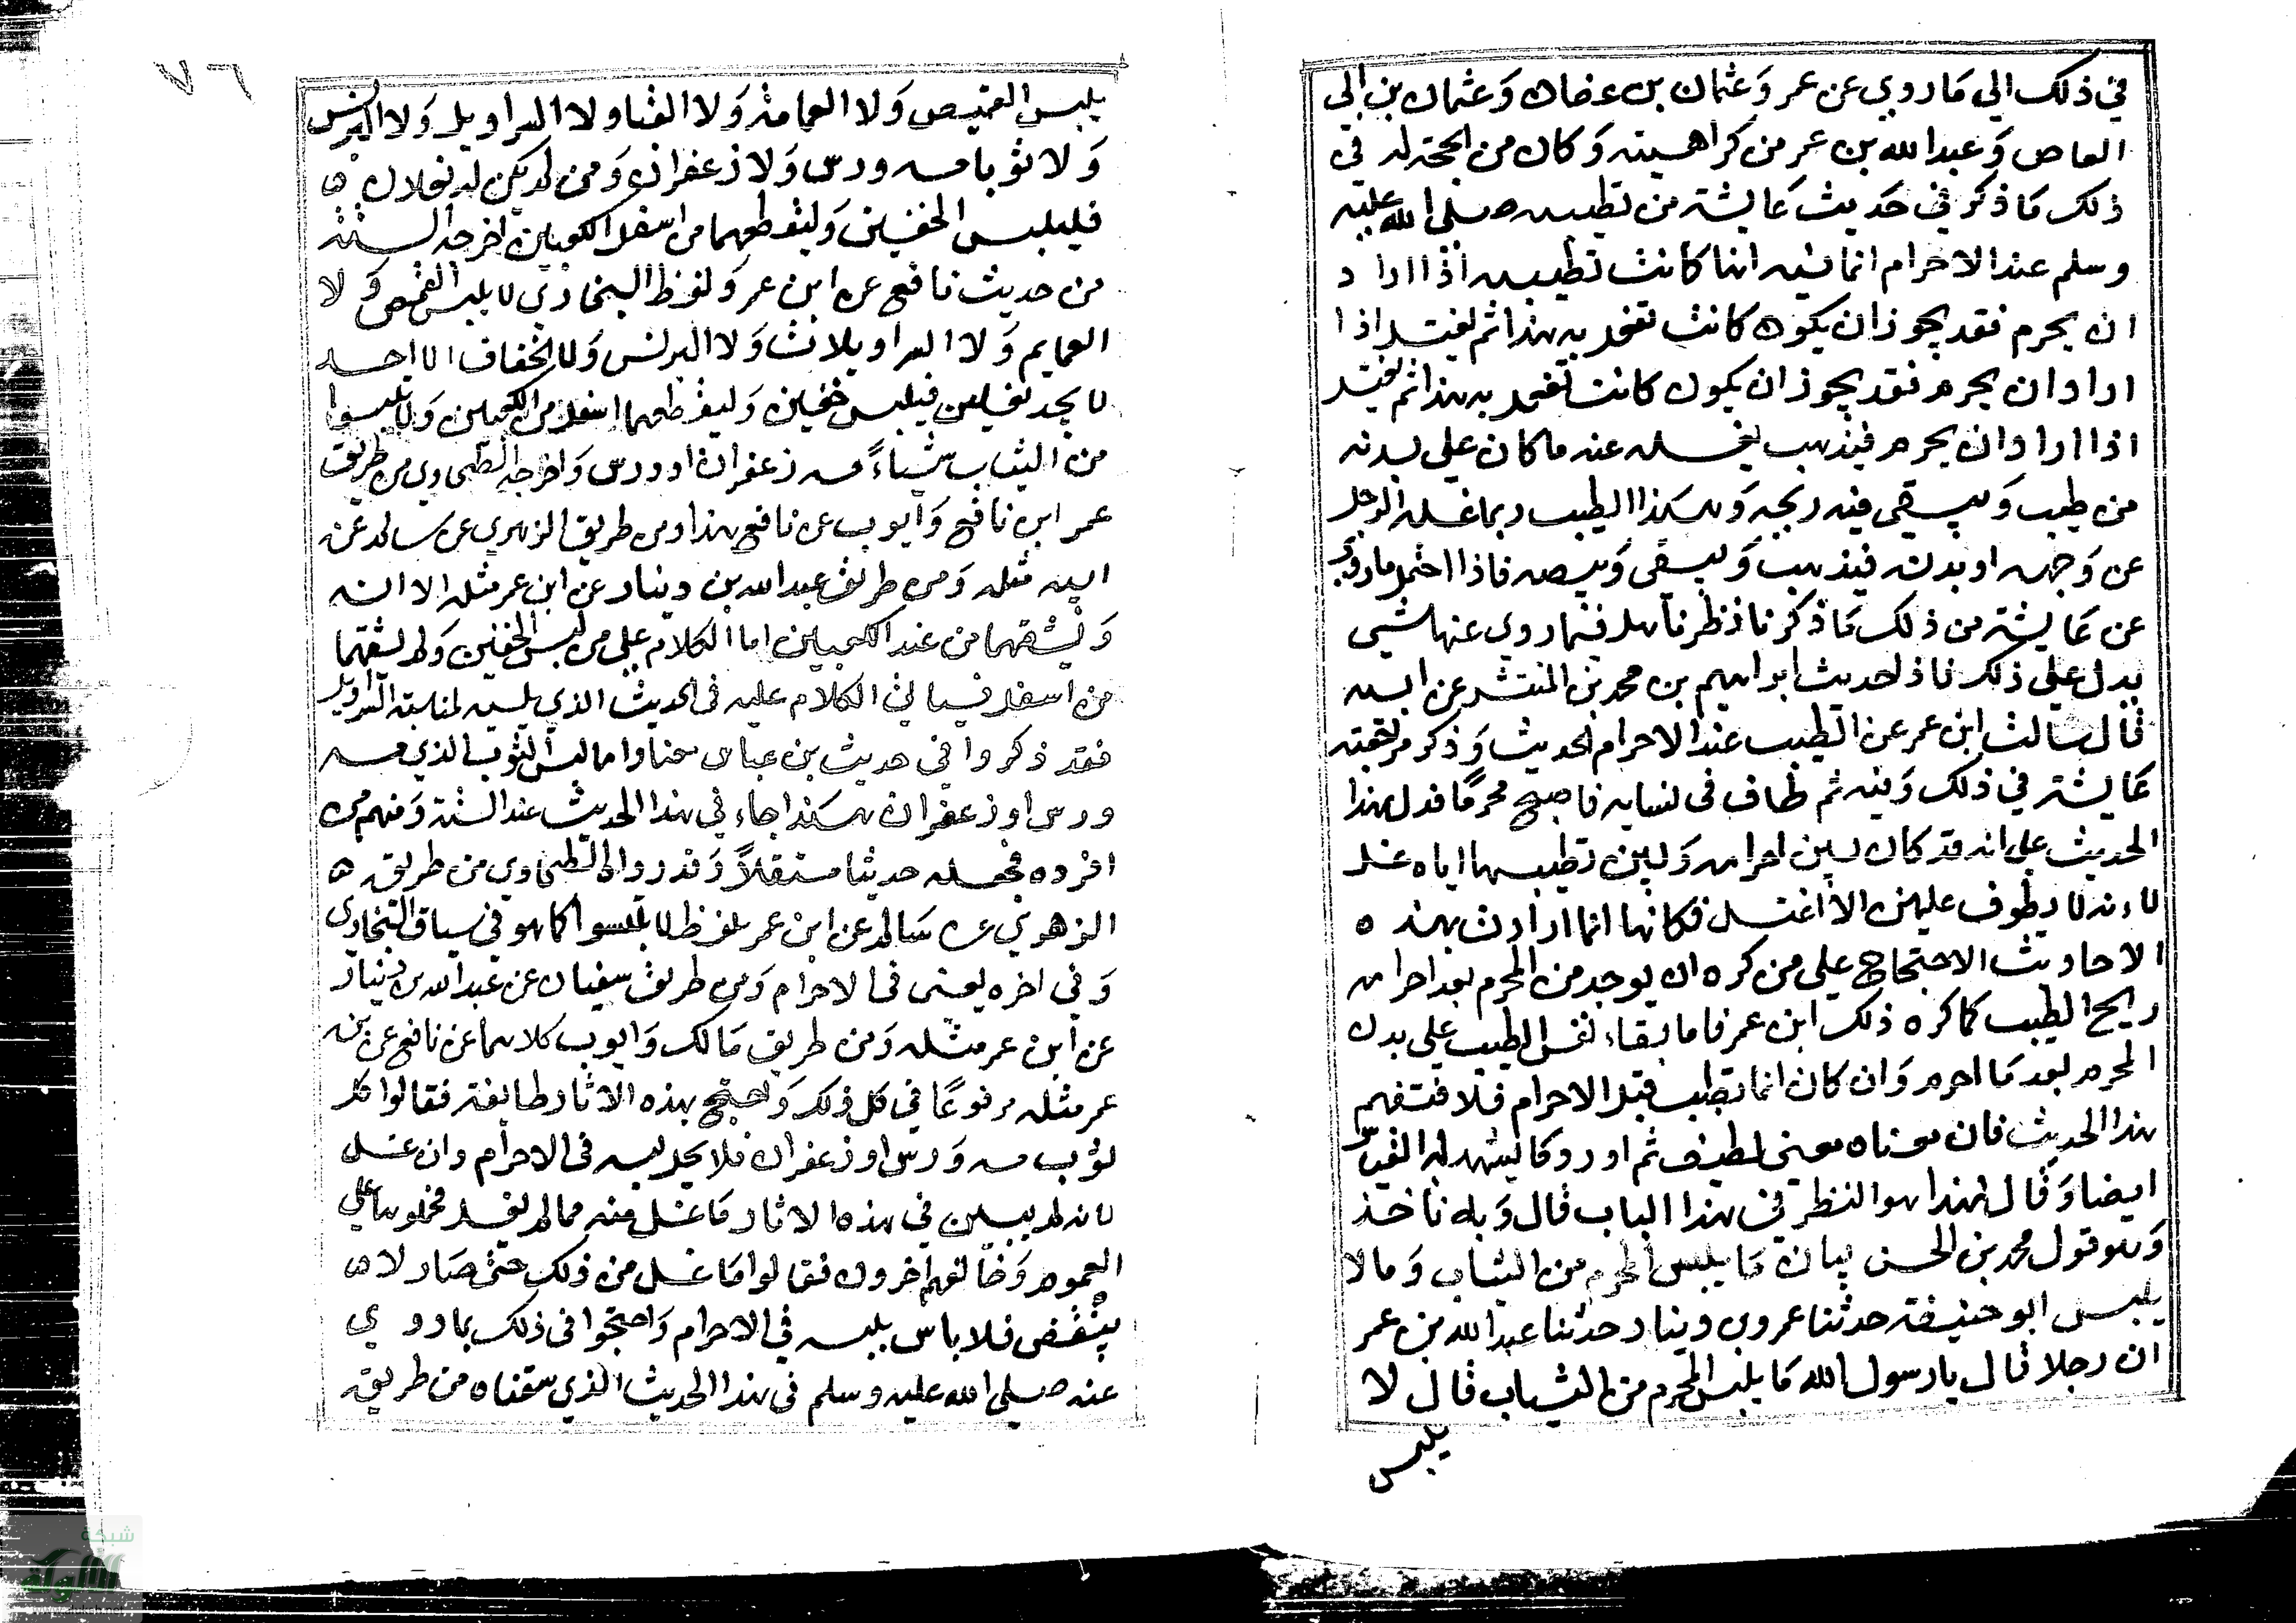 في ذلك الي مَا روي عن عمر وَعثمان بن عفان وَعثمان بن ابي
العاص وَعبد الله بن عمر من كراهيته وَكان من الحجة له في
ذلك مَا ذكر في حَديث عَايشة من تطييبه صلى الله عليه
وسلم عند الاحرام انما فيه انها كانت تطيبه اذا اراد
ان يحرم فقد يجوز ان يكون كانت تفعل به هذا ثم يغتسل اذا
اراد ان يحرم فقد يجوز ان يكون كانت تفعل به هذا ثم يغتسل
اذا اراد ان يحرم فيذهب بغسله عنه ما كان علي بدنه
من طيب وَيبقى فيه ريحه وَهكذا الطيب ربما غسله الرجل
عن وَجهه او بدنه فيذهب وَيبقى وَبيصه فاذا احتمل ما روي
عن عَايشة من ذلك مَا ذكرنا نظرنا هل فيما روي عنها شي
يدل علي ذلك فاذا حديث ابراهيم بن محمد بن المنتشر عن ابيه
قال سالت ابن عمر عن الطيب عند الاحرام الحديث وَذكر مراجعته
عَايشة في ذلك وَفيه ثم طاف في نسايه فاصبح محرمًا فدل هذا
الحديث علي انه قد كان بين احرامه وَبين تطييبها اياه غسل
لانه لا يطوف عليهن الا اغتسل فكانها انما ارادت بهذه
الاحاديث الاحتجاج علي من كره ان يوجد من المحرم بعد احرامه
ريح الطيب كما كره ذلك ابن عمر فاما بقاء نفس الطيب علي بدن
المحرم بعد مَا احرم وَان كان انما تطيب قبل الاحرام فلا فتفهم
هذا الحديث فان معناه معنى لطيف ثم اورد وكما يشهد له القياس
ايضا وَقال فهذا هو النظر في هذا الباب قال وَبه ناخذ
وَهو قول محمد بن الحسن بيان مَا يلبس المحرم من الثياب وَما لا
يلبس ابو حنيفة حدثنا عمرو بن دينار حدثنا عبد الله بن عمر
ان رجلا قال يا رسول الله مَا يلبس المحرم من الثياب قال لا
يلبس
٧٦
يلبس القميص وَلا العمامة وَلا القبا ولا السراويل وَلا البرنس
وَلا ثوبا مسه ورس وَلا زعفران وَمن لم يكن له نعلان
فليلبس الخفين وَليقطعهما من اسفل الكعبين اخرجه الستة
من حديث نافع عن ابن عمر وَلفظ البخاري لا يلبس القمص وَلا
العمايم وَلا السراويلات وَلا البرنس وَلا الخفاف الا احد
لا يجد نعلين فيلبس خفين وَليقطعهما اسفل من الكعبين وَلا تلبسوا
من الثياب شياءً مسه زعفران او ورس وَاخرجه الطحاوي من طريق
عمر ابن نافع وَايوب عن نافع بهذا ومن طريق الزهري عن سالم عن
ابيه مثله وَمن طريق عبد الله بن دينار عن ابن عمر مثله الا انه
وَليشقهما من عند الكعبين اما الكلام علي من لبس الخفين وَلم يشقهما
من اسفل فسياتي الكلام عليه في الحديث الذي يليه لمناسبة السراويل
فقد ذكروا في حديث بن عباس معا واما لبس الثوب الذي مسه
ورس او زعفران هكذا جاء في هذا الحديث عند الستة وَمنهم من
افرده فجعله حديثا مستقلاً وَقد روى الطحاوي من طريق
الزهري عن سَالم عن ابن عمر بلفظ لا تلبسوا كما هو في سياق البخاري
وَفي اخره يعني في الاحرام وَمن طريق سفيان عن عبد الله بن دينار
عن ابن عمر مثله وَمن طريق مَالك وَايوب كلاهما عن نافع عن بن
عمر مثله مرفوعًا في كل ذلك وَاحتج بهذه الاثار طايفة فقالوا كل
ثوب مسه وَرس او زعفران فلا يحل لبسه في الاحرام وان غسل
لانه لم يبين في هذه الاثار مَا غسل منه مما لم يغسل فحملوها علي
العموم وَخالفهم اخرون فقالوا مَا غسل من ذلك حتى صَار لا
ينفض فلا باس بلبسه في الاحرام وَاحتجوا في ذلك بما روي
عنه صلى الله عليه وسلم في هذا الحديث الذي سقناه من طريق
شبكة
الألوكة